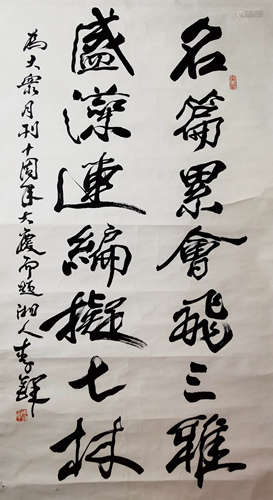 名篇累會飛三雅
盛藻連編擬七林
為大眾月刊十周年大慶而題湘人李鐸